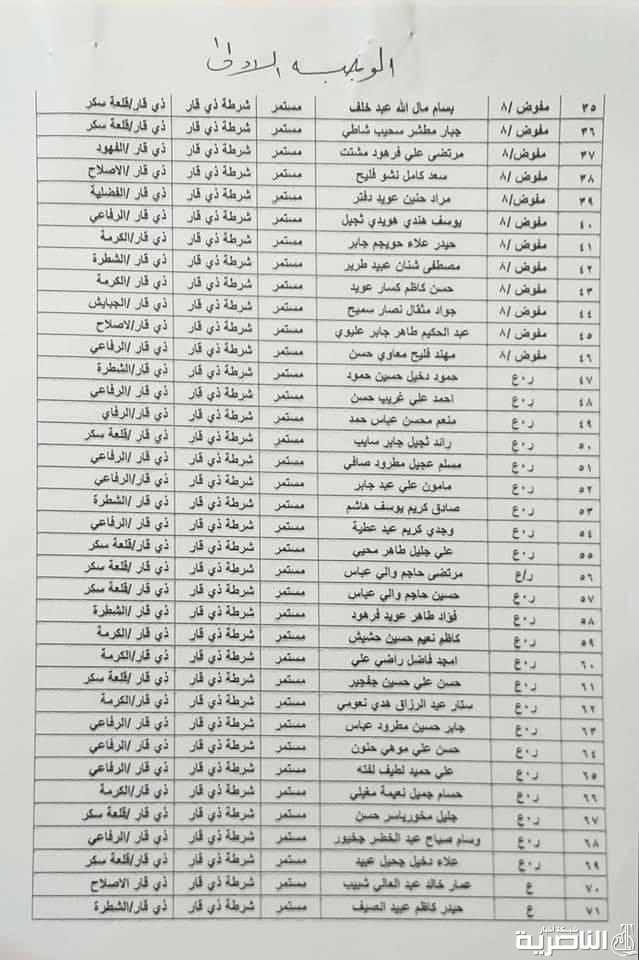 الوجبه الاولى
٣٥ مفوض /٨ بسام مال الله عبد خلف مستمر شرطة ذي قار ذي قار/قلعة سكر
٣٦ مفوض /٨ جبار مطشر سحيب شاطي مستمر شرطة ذي قار ذي قار/قلعة سكر
٣٧ مفوض/٨ مرتضى علي فرهود مشتت مستمر شرطة ذي قار ذي قار /الفهود
٣٨ مفوض /٨ سعد كامل نشو فليح مستمر شرطة ذي قار ذي قار /الاصلاح
٣٩ مفوض/٨ مراد حنين عويد دفتر مستمر شرطة ذي قار ذي قار/الفضلية
٤٠ مفوض /٨ يوسف هندي هويدي ثجيل مستمر شرطة ذي قار ذي قار /الرفاعي
٤١ مفوض /٨ حيدر علاء حويجم جابر مستمر شرطة ذي قار ذي قار/الكرمة
٤٢ مفوض /٨ مصطفى شنان عبيد طرير مستمر شرطة ذي قار ذي قار /الشطرة
٤٣ مفوض /٨ حسن كاظم كسار عويد مستمر شرطة ذي قار ذي قار /الكرمة
٤٤ مفوض /٨ جواد مثقال نصار سميح مستمر شرطة ذي قار ذي قار /الجبايش
٤٥ مفوض /٨ عبد الحكيم طاهر جابر عليوي مستمر شرطة ذي قار ذي قار/لاصلاح
٤٦ مفوض /٨ مهند فليح معاوي حسن مستمر شرطة ذي قار ذي قار /الرفاعي
٤٧ ر٠ع حمود دخيل حسين حمود مستمر شرطة ذي قار ذي قار/الشطرة
٤٨ ر٠ع احمد علي غريب حسن مستمر شرطة ذي قار ذي قار /الرفاعي
٤٩ ر٠ع منعم محسن عباس حمد مستمر شرطة ذي قار ذي قار/الرفاي
٥٠ ر٠ع رائد ثجيل جابر سايب مستمر شرطة ذي قار ذي قار /قلعة سكر
٥١ ر٠ع مسلم عجيل مطرود صافي مستمر شرطة ذي قار ذي قار /الرفاعي
٥٢ ر٠ع مامون علي عبد جابر مستمر شرطة ذي قار ذي قار /الرفاعي
٥٣ ر٠ع صادق كريم يوسف هاشم مستمر شرطة ذي قار ذي قار /الشطرة
٥٤ ر٠ع وجدي كريم عبد عطية مستمر شرطة ذي قار ذي قار /الرفاعي
٥٥ ر٠ع علي جليل طاهر محيي مستمر شرطة ذي قار ذي قار/قلعة سكر
٥٦ ر/ع مرتضى حاجم والي عباس مستمر شرطة ذي قار ذي قار /قلعة سكر
٥٧ ر٠ع حسين حاجم والي عباس مستمر شرطة ذي قار ذي قار /قلعة سكر
٥٨ ر٠ع فؤاد طاهر عويد فرهود مستمر شرطة ذي قار ذي قار /الشطرة
٥٩ ر٠ع كاظم نعيم حسين حشيش مستمر شرطة ذي قار ذي قار /الكرمة
٦٠ ر٠ع امجد فاضل راضي علي مستمر شرطة ذي قار ذي قار/الكرمة
٦١ ر٠ع حسن علي حسين جفجير مستمر شرطة ذي قار ذي قار /قلعة سكر
٦٢ ر٠ع ستار عبد الرزاق هدي نعومي مستمر شرطة ذي قار ذي قار/الكرمة
٦٣ ر٠ع جابر حسين مطرود عباس مستمر شرطة ذي قار ذي قار /الرفاعي
٦٤ ر٠ع حسن علي موهي حنون مستمر شرطة ذي قار ذي قار /الرفاعي
٦٥ ر٠ع علي حميد لطيف لفته مستمر شرطة ذي قار ذي قار /الرفاعي
٦٦ ر٠ع حسام جميل نعيمة مغيلي مستمر شرطة ذي قار ذي قار /الكرمة
٦٧ ر٠ع جليل مخورياسر حسن مستمر شرطة ذي قار ذي قار /قلعة سكر
٦٨ ر٠ع وسام صباح عبد الخضر جخيور مستمر شرطة ذي قار ذي قار /الرفاعي
٦٩ ر٠ع علاء دخيل جحيل عبيد مستمر شرطة ذي قار ذي قار/قلعة سكر
٧٠ ع عمار خالد عبد العالي شبيب مستمر شرطة ذي قار ذي قار الاصلاح
٧١ ع حيدر كاظم عبيد الصيف مستمر شرطة ذي قار ذي قار/الشطرة
شبكة اخبار
الناصرية